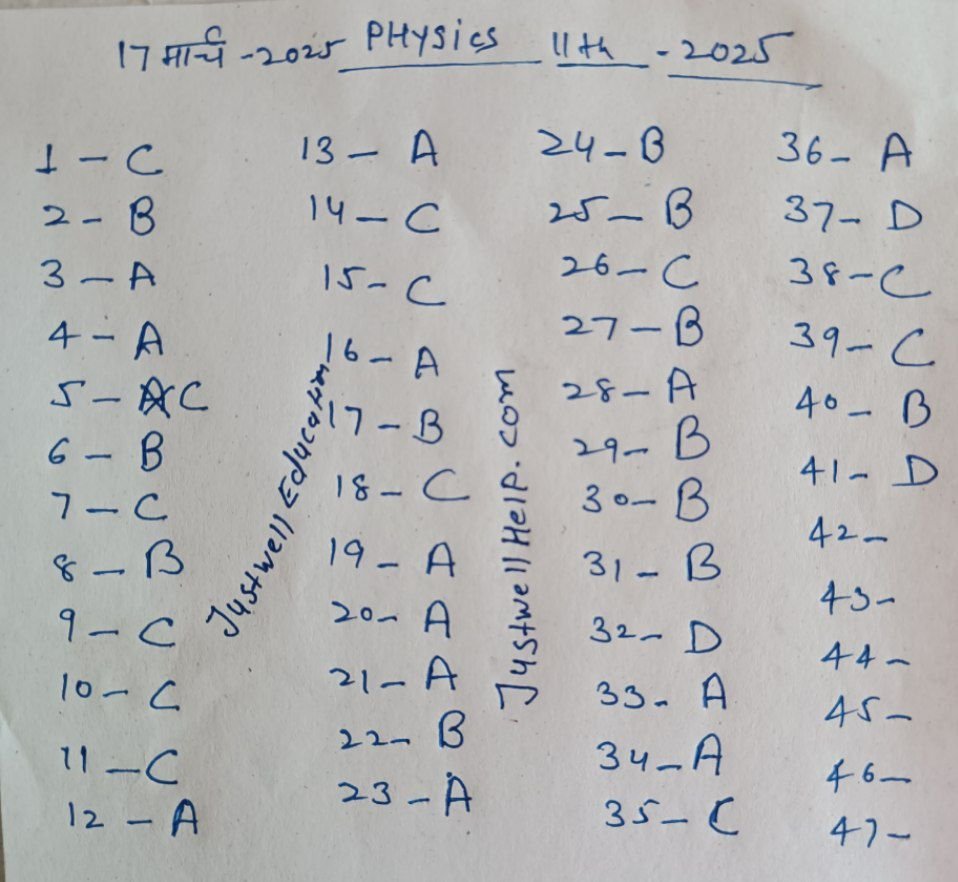 17 मार्च -2025 PHYSics 11th - 2025
1 - C
2 - B
3 - A
4 - A
5 - C
6 - B
7 - C
8 - B
9 - C
10 - C
11 - C
12 - A
13 - A
14 - C
15 - C
16 - A
17 - B
18 - C
19 - A
20 - A
21 - A
22 - B
23 - A
Justwell Education
JustwellHelp.com
24 - B
25 - B
26 - C
27 - B
28 - A
29 - B
30 - B
31 - B
32 - D
33 - A
34 - A
35 - C
36 - A
37 - D
38 - C
39 - C
40 - B
41 - D
42 -
43 -
44 -
45 -
46 -
47 -